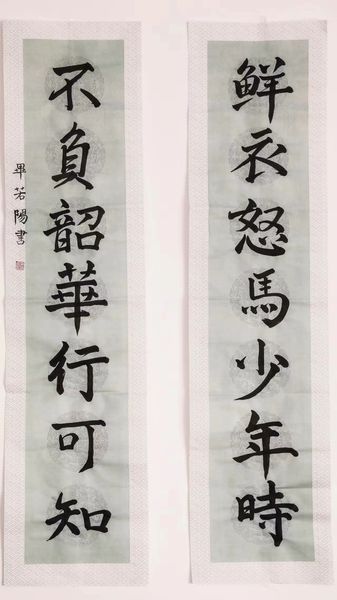 鮮衣怒馬少年時
不負韶華行可知
畢若陽書